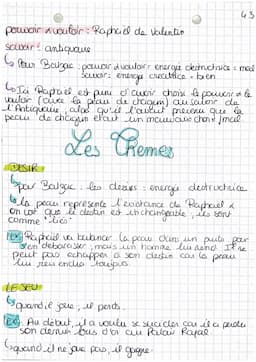 43
pouvoir & vouloir : Raphaël de Valentin
savoir : antiquaire
↳ Pour Balzac : pouvoir & vouloir : energie destructrice = mal
savoir : energie creatrice = bien
↳ Ici Raphaël est puni d'avoir choisi le pouvoir & le
vouloir (avec la peau de chagrin) au savoir de
l'Antiquaire, alors qu'il l'avait prevenu que la
peau de chagrin etait un mauvais choix / mal.
Les Themes
DESIR
↳ pour Balzac : les desirs : energie destructrice
↳ la peau represente l'existance de Raphaël &
on voit que le destin est inchangeable, ils sont
comme "liés"
Ex: Raphaël va balancer la peau dans un puits pour
s'en debarasser, mais un homme lui rend. Il ne
peut pas echapper a son destin car la peau
lui reviendra toujours.
LE JEU
↳ quand il joue, il perds.
Ex: Au début, il a voulu se suicider car il a perdu
son dernier sous d'or au Palais Royal
↳ quand il ne joue pas, il gagne.